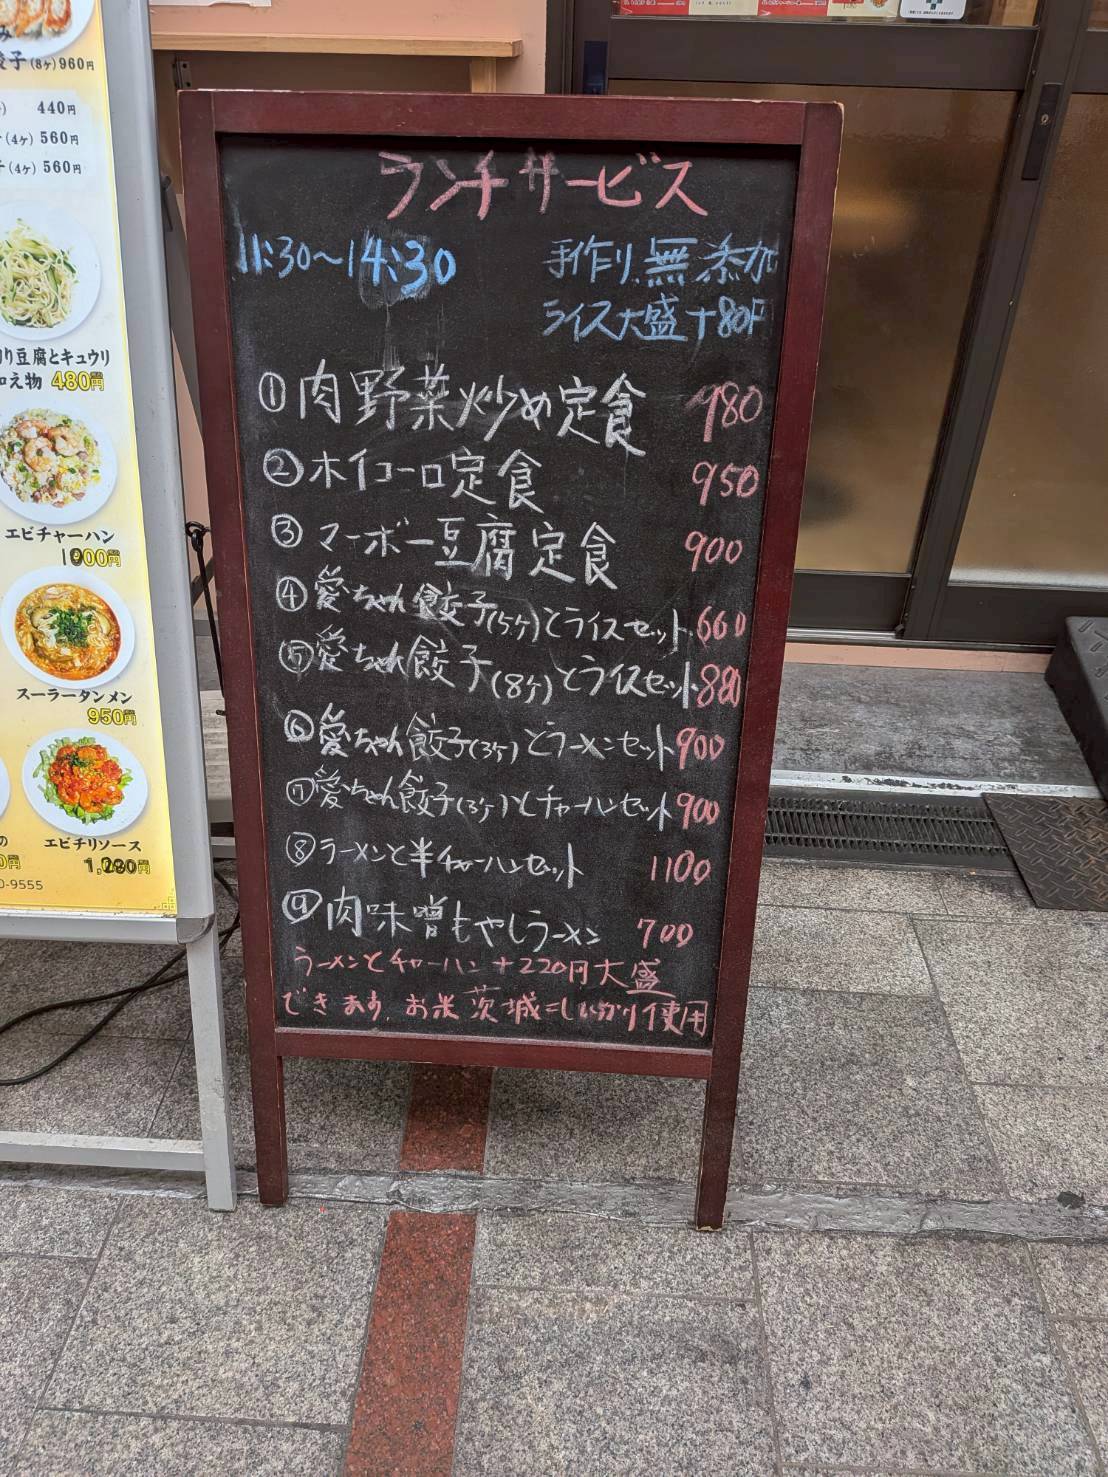 子(8ヶ)960円
440円
(4ヶ)560円
(4ヶ)560円
り豆腐とキュウリ
和え物 480円
エビチャーハン
1000円
スーラータンメン
950円
エビチリソース
1,280円
0-9555
ランチサービス
11:30〜14:30
手作り.無添加
ライス大盛+80円
①肉野菜炒め定食 980
②ホイコーロ定食 950
③マーボー豆腐定食 900
④愛ちゃん餃子(5ヶ)とライスセット 660
⑤愛ちゃん餃子(8ヶ)とライスセット 880
⑥愛ちゃん餃子(3ヶ)とラーメンセット 900
⑦愛ちゃん餃子(3ヶ)とチャーハンセット 900
⑧ラーメンと半チャーハンセット 1100
⑨肉味噌もやしラーメン 700
ラーメンとチャーハン+220円大盛
できます。お米茨城こしひかり使用